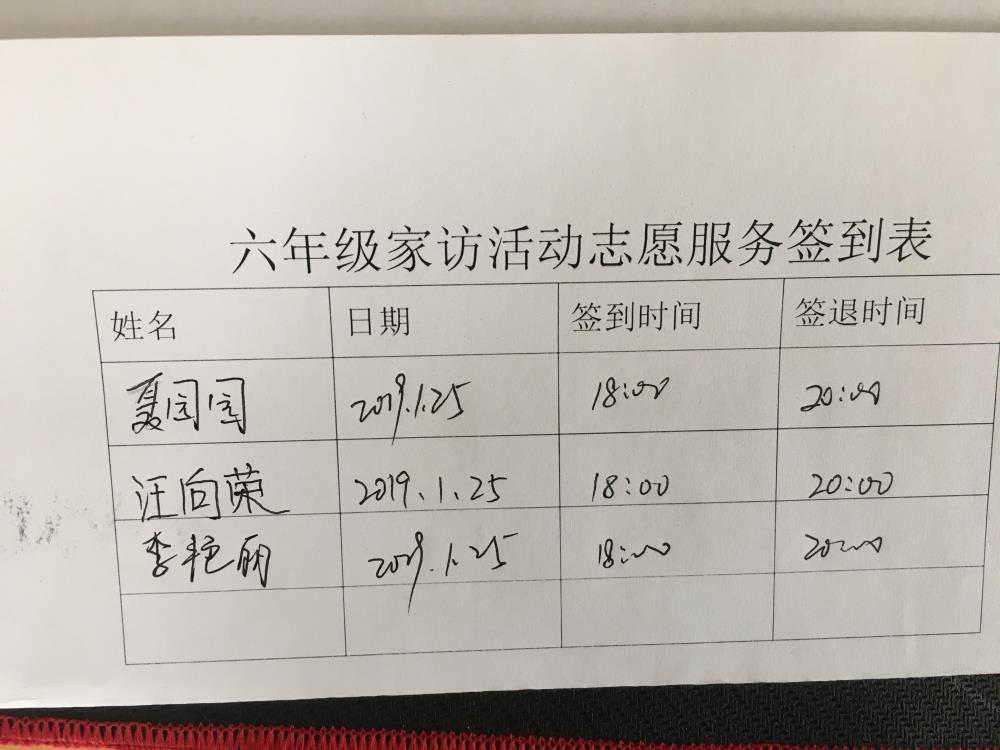 六年级家访活动志愿服务签到表
姓名 日期 签到时间 签退时间
夏园园 2019.1.25 18:00 20:00
汪向荣 2019.1.25 18:00 20:00
李艳丽 2019.1.25 18:00 20:00